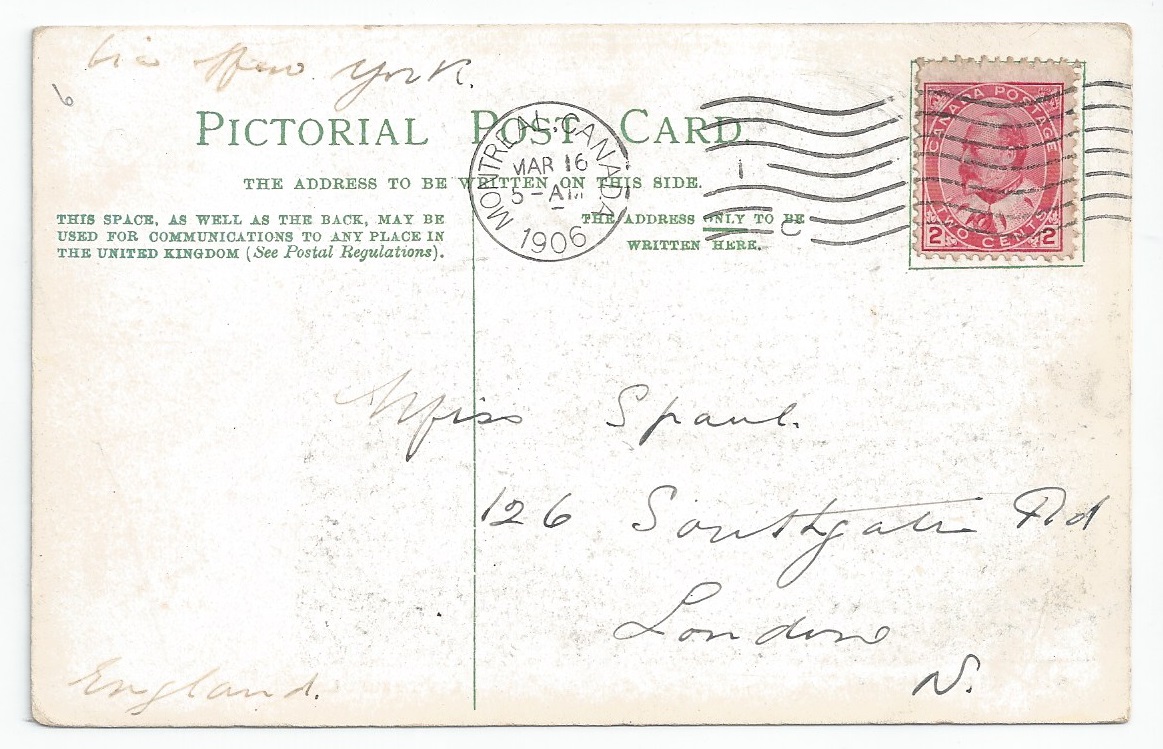 via New York.
6
PICTORIAL POST CARD.
THE ADDRESS TO BE WRITTEN ON THIS SIDE.
THIS SPACE, AS WELL AS THE BACK, MAY BE
USED FOR COMMUNICATIONS TO ANY PLACE IN
THE UNITED KINGDOM (See Postal Regulations).
THE ADDRESS ONLY TO BE
WRITTEN HERE.
MONTREAL. CANADA
MAR 16
5-AM
1906
CANADA POSTAGE
2 TWO CENTS 2
Miss Spaul.
126 Southgate Rd
London
N.
England.